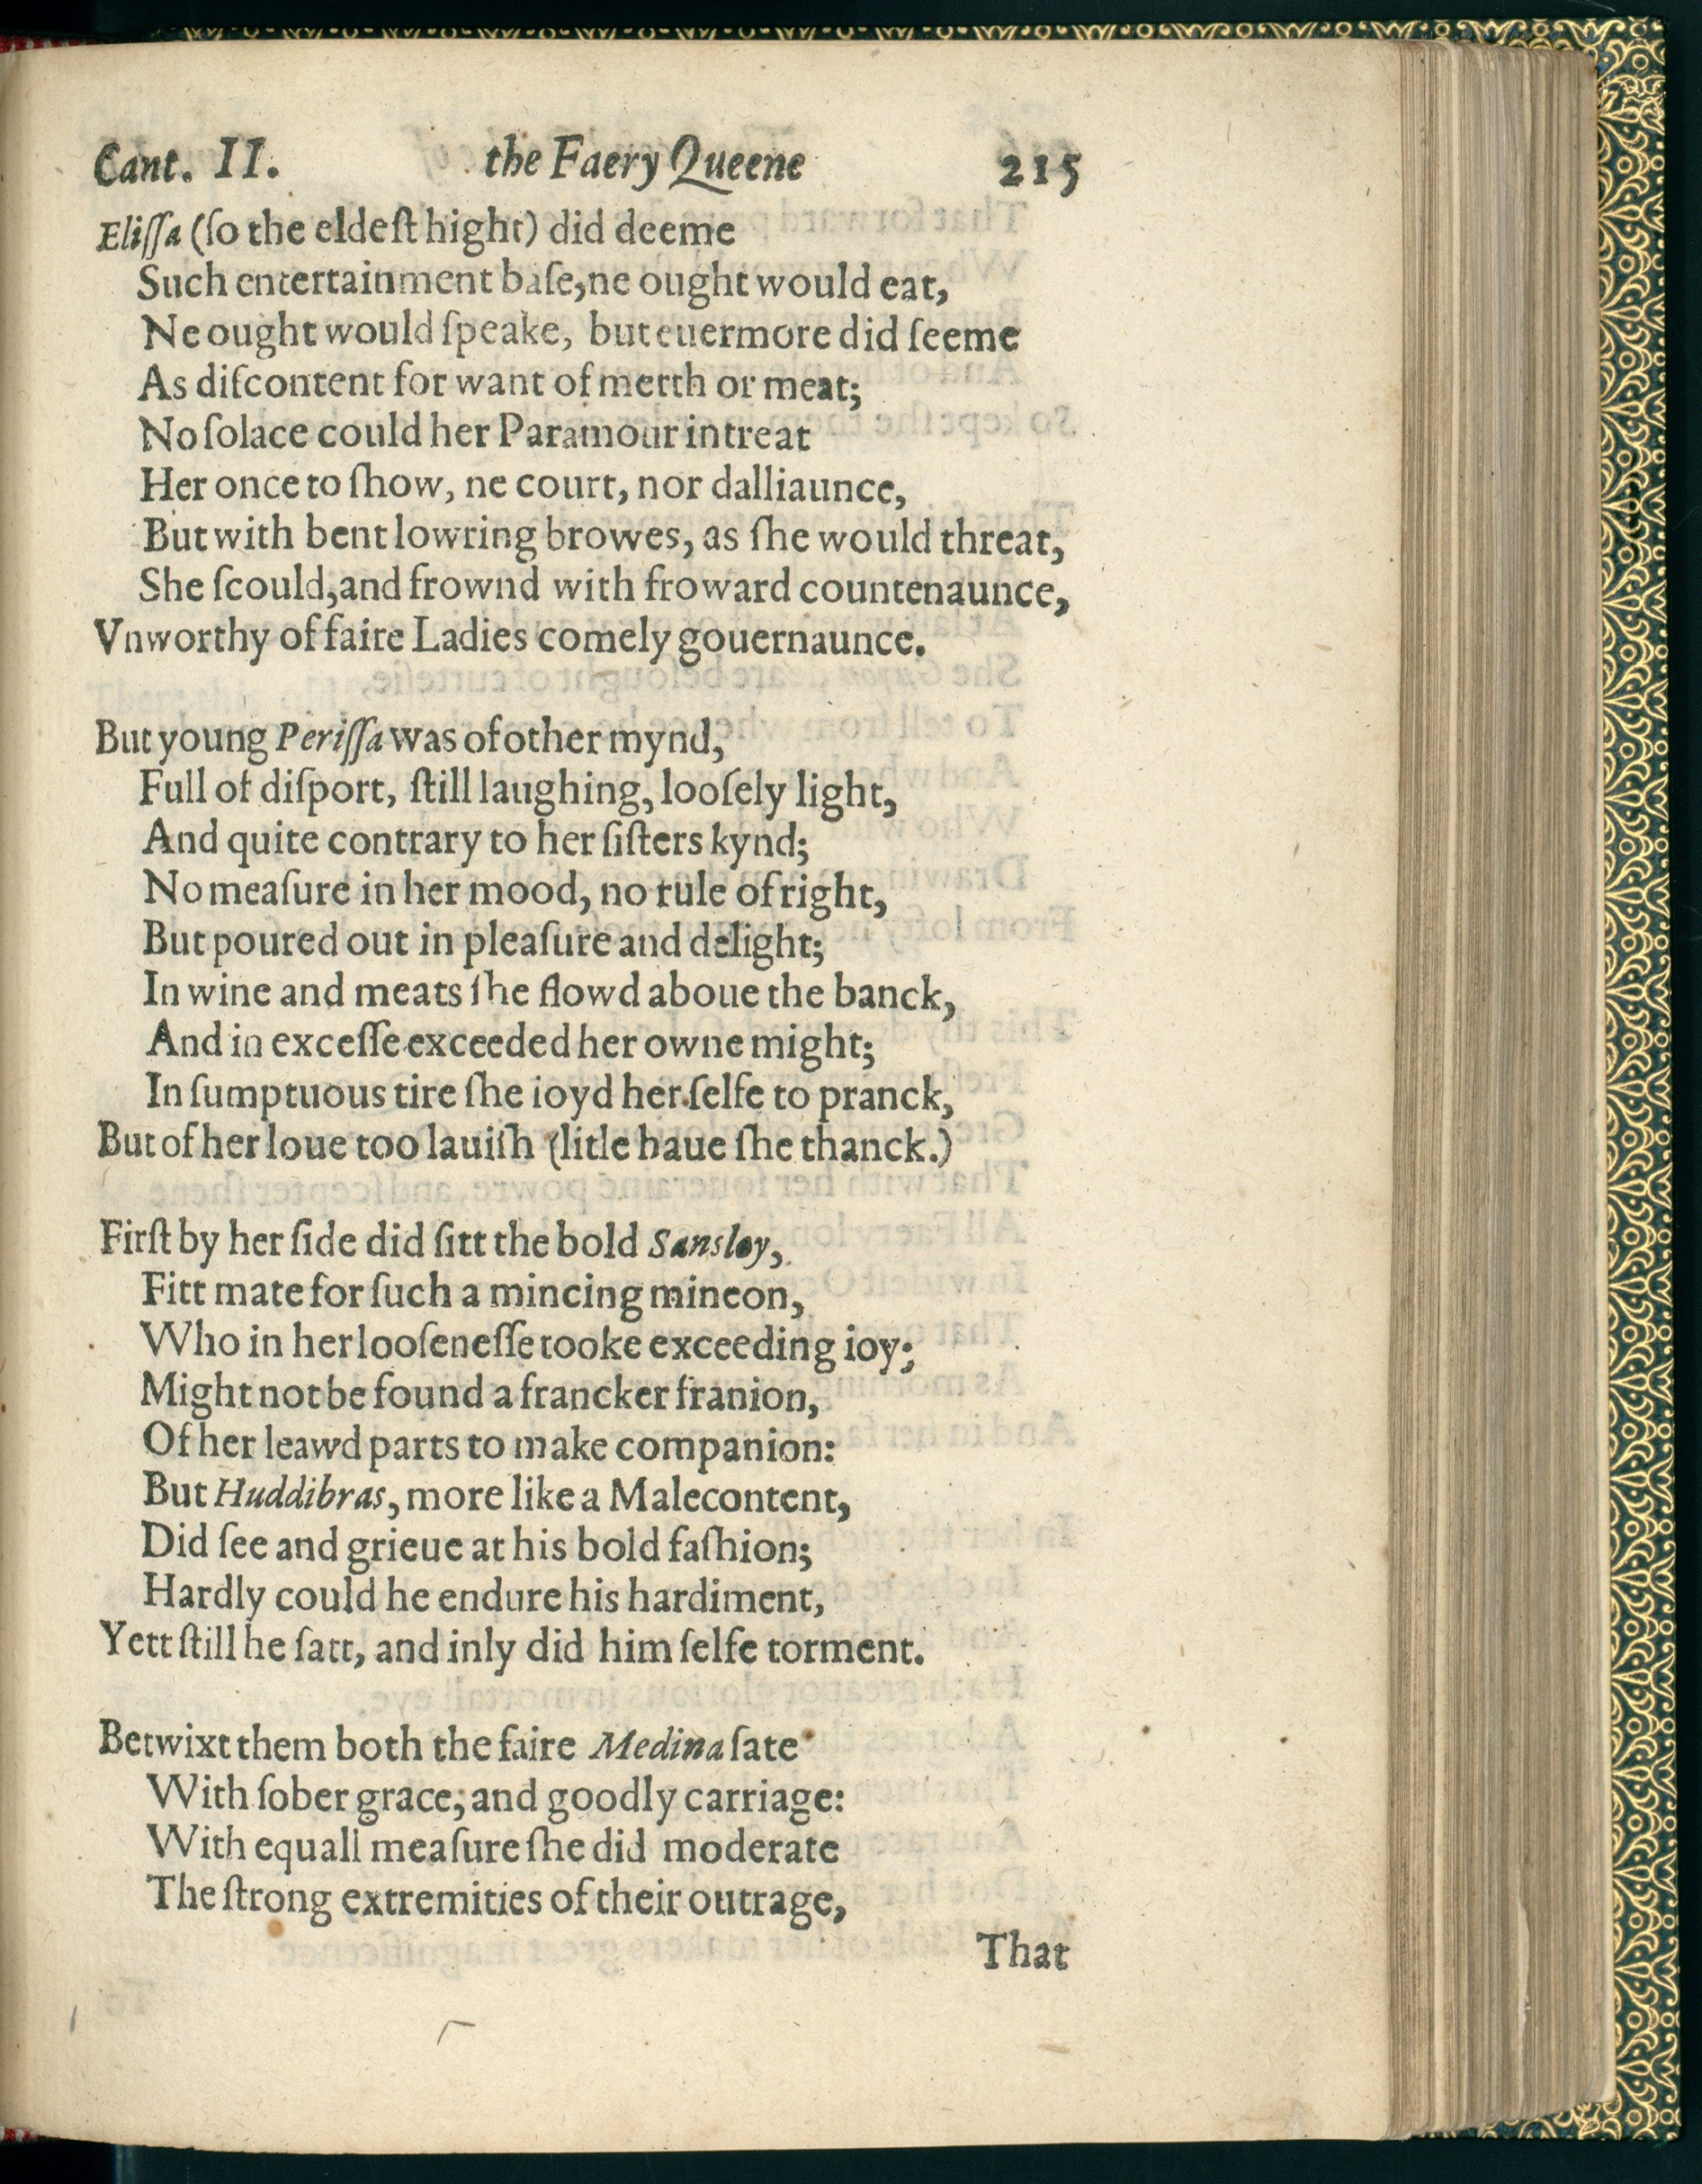 Cant. II. the Faery Queene 215
Eliſſa (ſo the eldeſt hight) did deeme
Such entertainment baſe, ne ought would eat,
Ne ought would ſpeake, but euermore did ſeeme
As diſcontent for want of merth or meat;
No ſolace could her Paramour intreat
Her once to ſhow, ne court, nor dalliaunce,
But with bent lowring browes, as ſhe would threat,
She ſcould, and frownd with froward countenaunce,
Vnworthy of faire Ladies comely gouernaunce.
But young Periſſa was of other mynd,
Full of diſport, ſtill laughing, looſely light,
And quite contrary to her ſiſters kynd;
No meaſure in her mood, no rule of right,
But poured out in pleaſure and delight;
In wine and meats ſhe flowd aboue the banck,
And in exceſſe exceeded her owne might;
In ſumptuous tire ſhe ioyd her ſelfe to pranck,
But of her loue too lauiſh (litle haue ſhe thanck.)
Firſt by her ſide did ſitt the bold Sansloy,
Fitt mate for ſuch a mincing mineon,
Who in her looſeneſſe tooke exceeding ioy;
Might not be found a francker franion,
Of her leawd parts to make companion:
But Huddibras, more like a Malecontent,
Did ſee and grieue at his bold faſhion;
Hardly could he endure his hardiment,
Yett ſtill he ſatt, and inly did him ſelfe torment.
Betwixt them both the faire Medina ſate
With ſober grace, and goodly carriage:
With equall meaſure ſhe did moderate
The ſtrong extremities of their outrage,
That